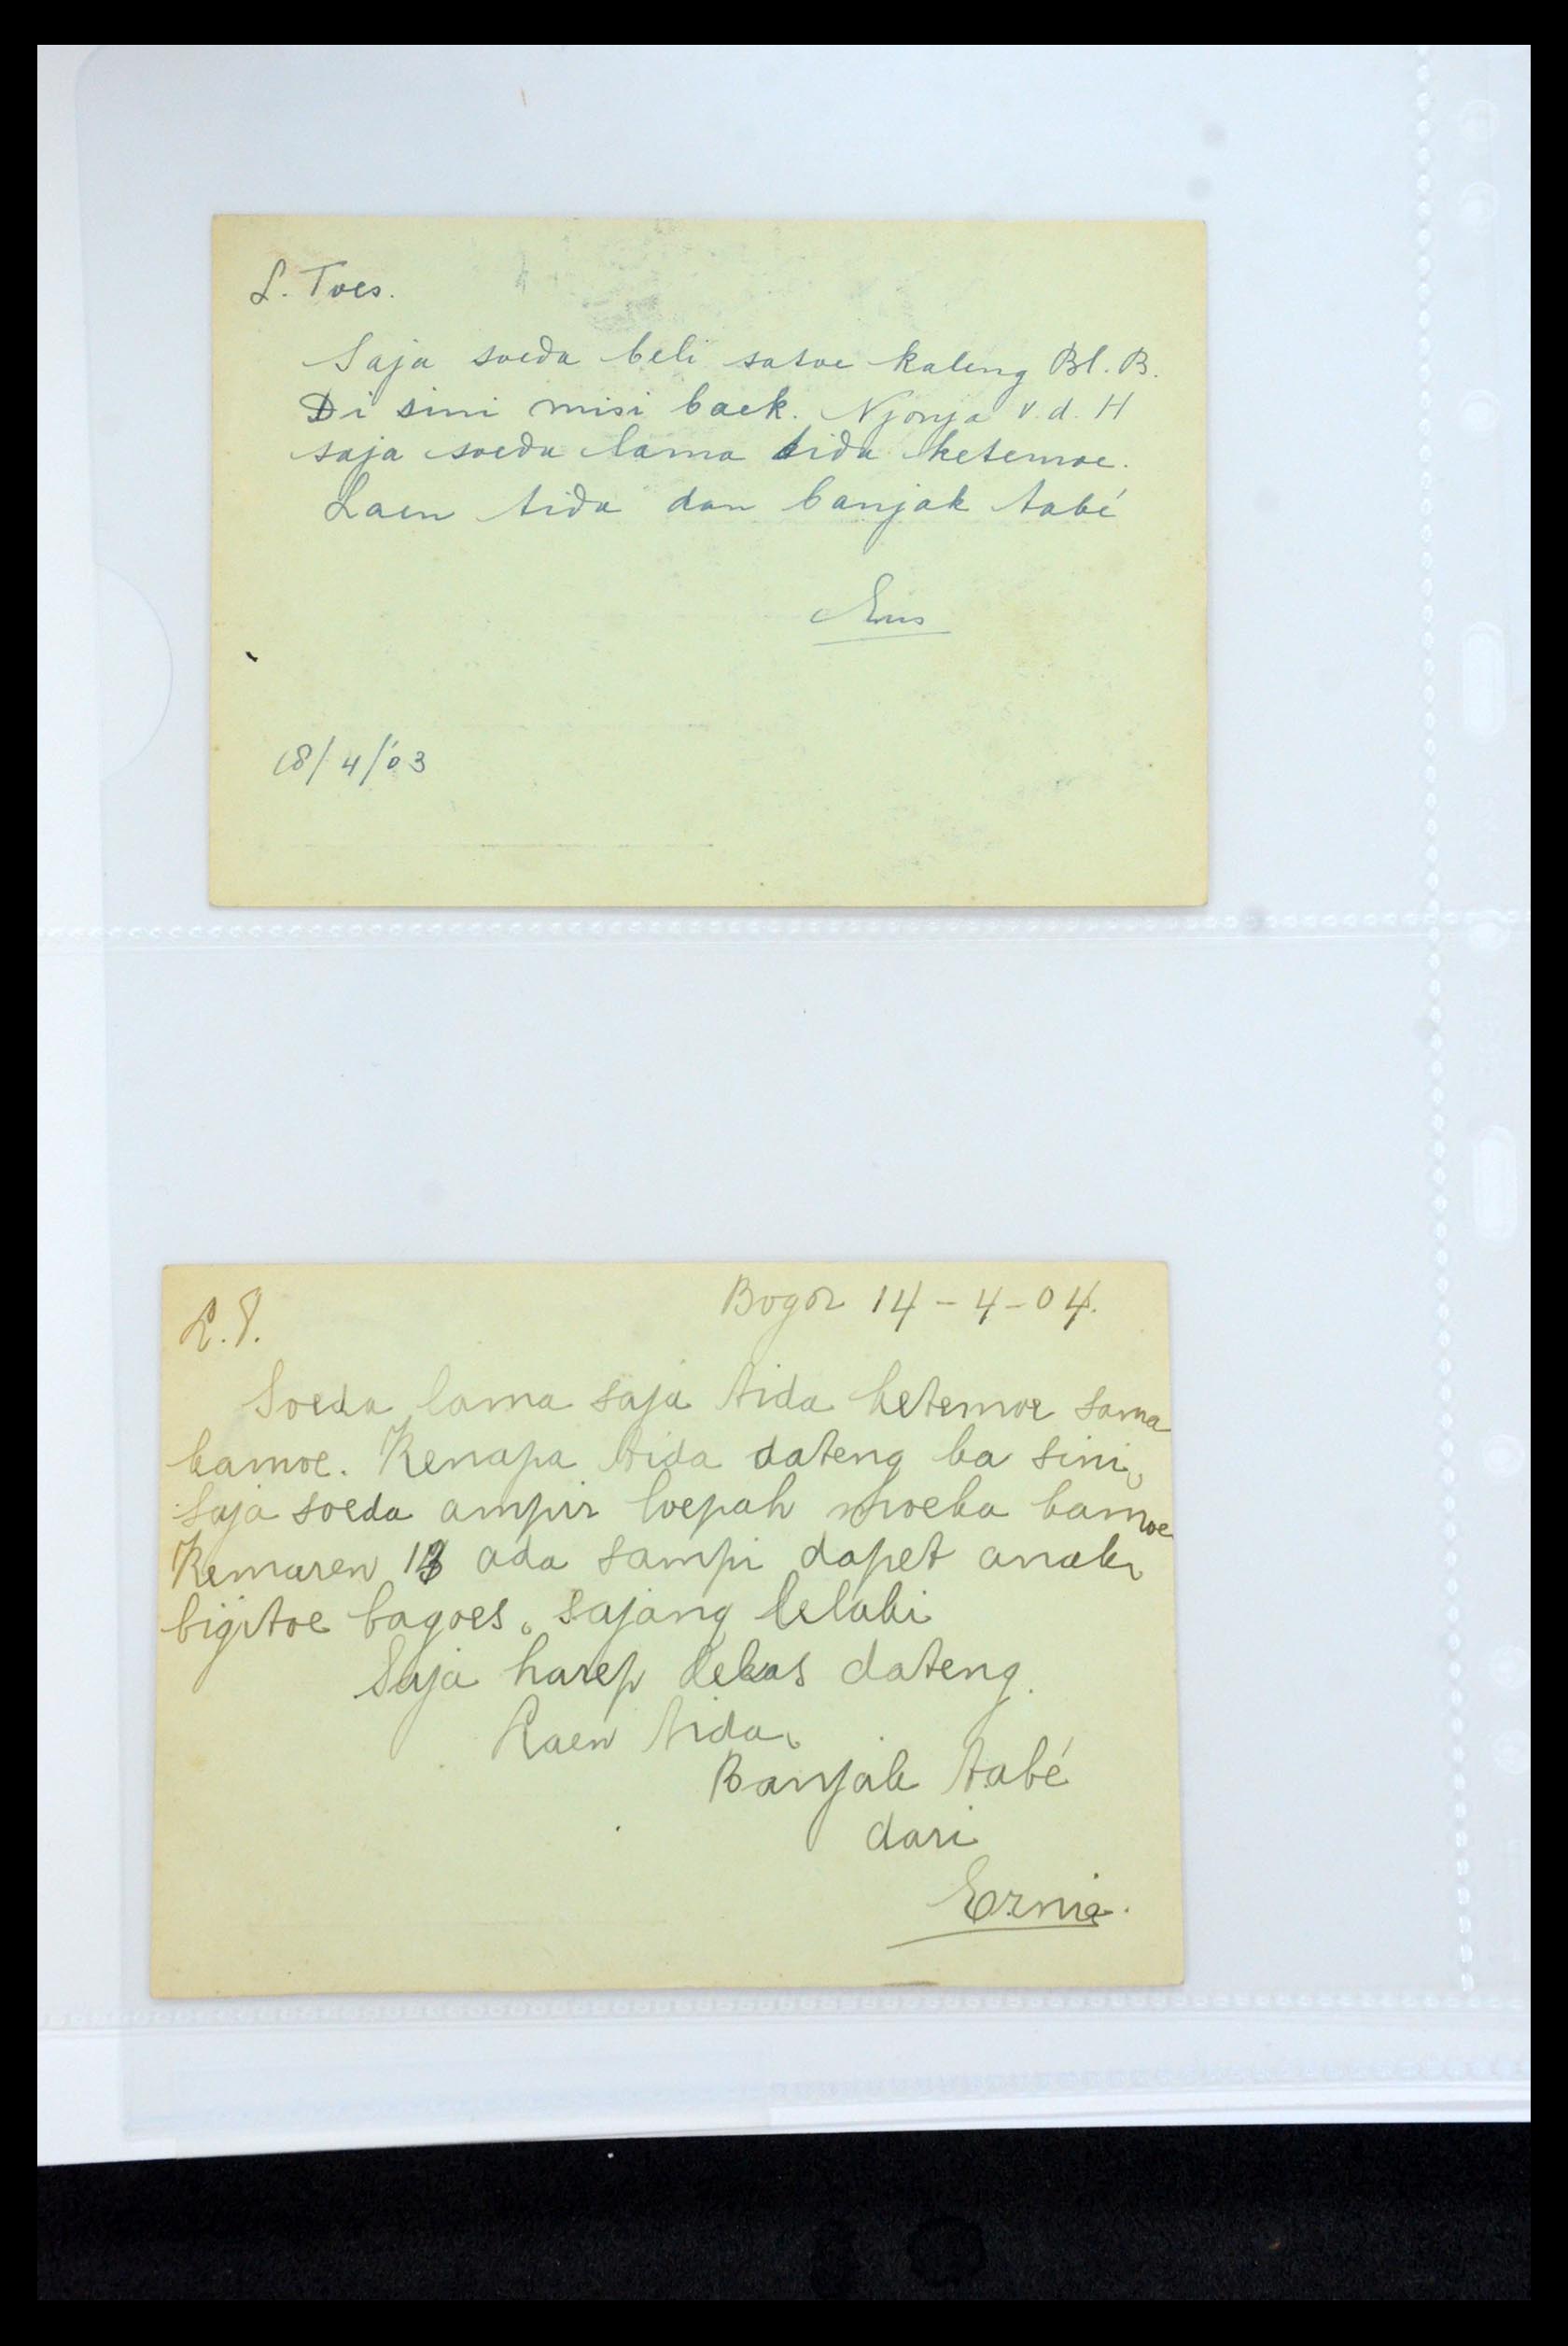 L. Toes.
Saja soeda beli satoe kaleng Bl. B.
Di sini misi baek. Njonja v. d. H
saja soeda lama tida ketemoe.
Laen tida dan banjak tabé
18/4/'03
L.T.
Bogor 14-4-04.
Soeda lama saja tida ketemoe sama
kamoe. Kenapa tida dateng ka sini,
Saja soeda ampir loepah moeka kamoe
Kemaren 13 ada sampi dapet anak,
bigitoe bagoes, sajang lelaki
Saja harep lekas dateng.
Laen tida,
Banjak tabé
dari
Ernie.